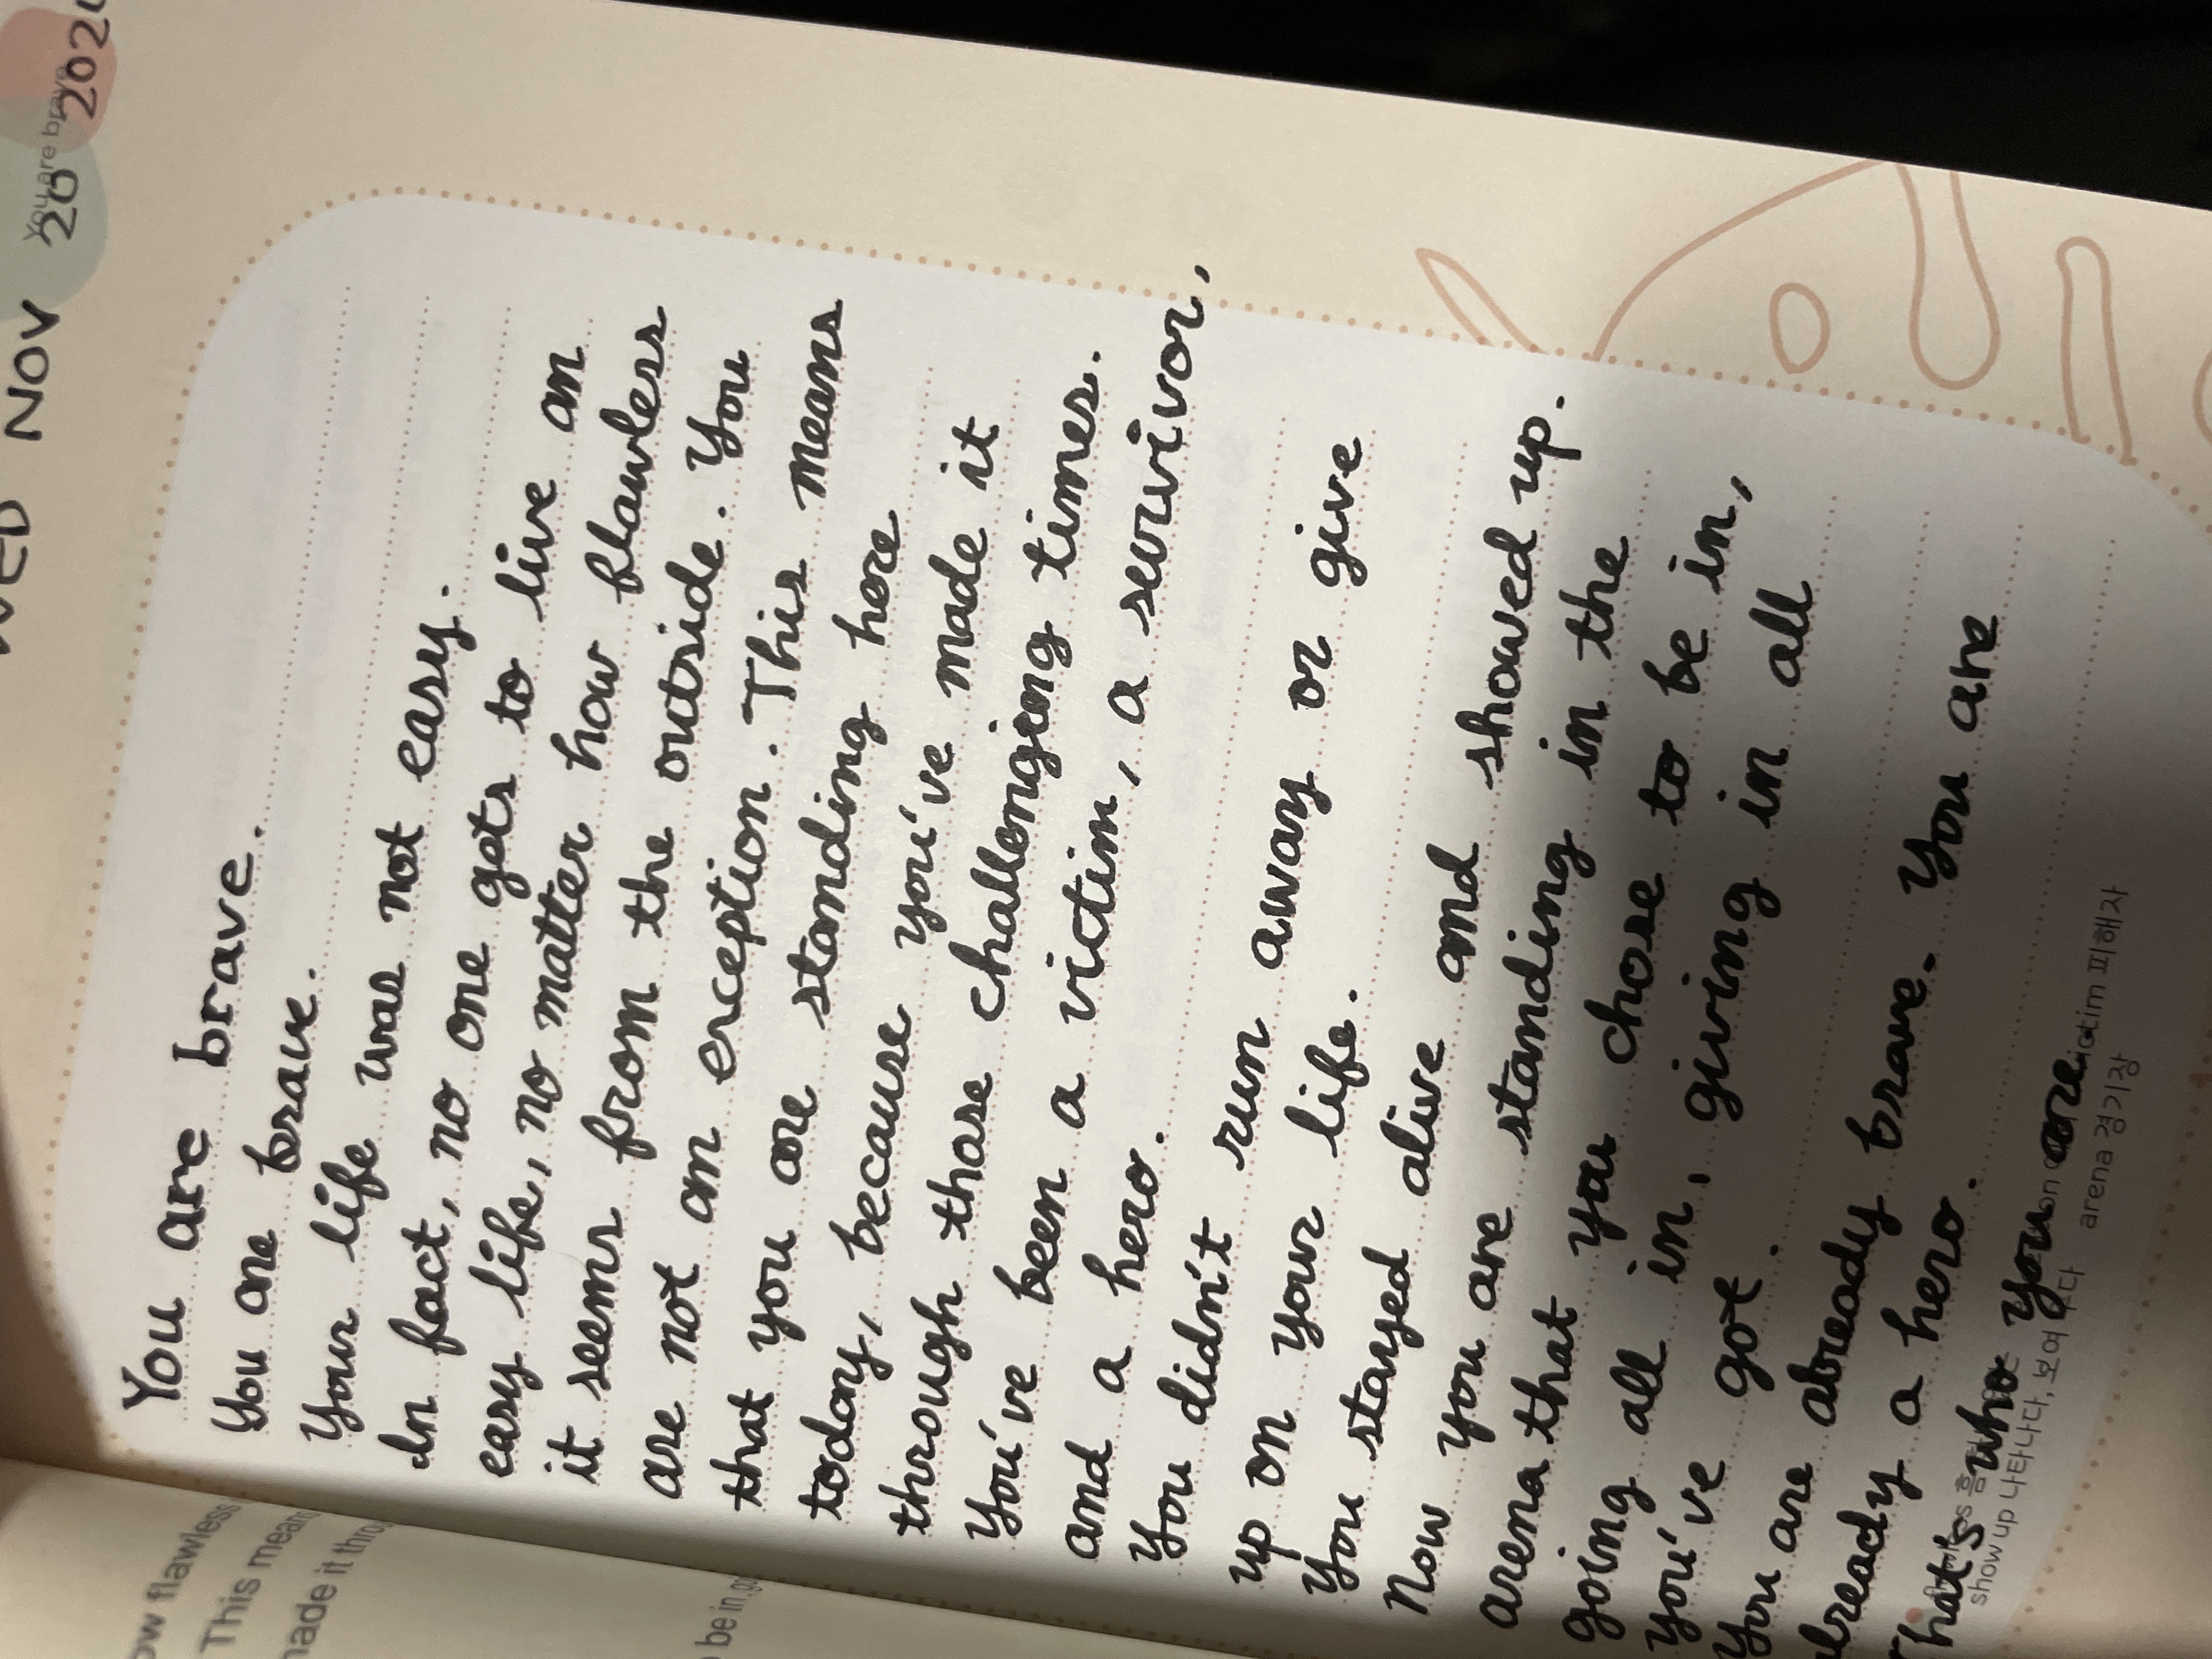 WED NOV 20 202
You are brave
ow flawless
This mean
made it thro
be in, go
You are brave.
You are brave.
Your life was not easy.
In fact, no one gets to live an
easy life, no matter how flawless
it seems from the outside. You
are not an exception. This means
that you are standing here
today, because you've made it
through those challenging times.
You've been a victim, a survivor,
and a hero.
You didn't run away or give
up on your life.
You stayed alive and showed up.
Now you are standing in the
arena that you chose to be in,
going all in, giving in all
you've got.
You are already brave. You are
already a hero.
That's who you are.
victim 피해자
show up 나타나다, 보여 주다 arena 경기장